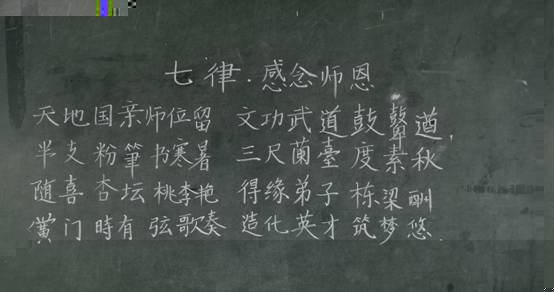 七律·感念师恩
天地国亲师位留 文功武道鼓鼛遒,
半支粉筆书寒暑 三尺蘭臺度素秋
随喜杏坛桃李艳 得缘弟子栋梁酬
黉门時有弦歌奏 造化英才筑梦悠.